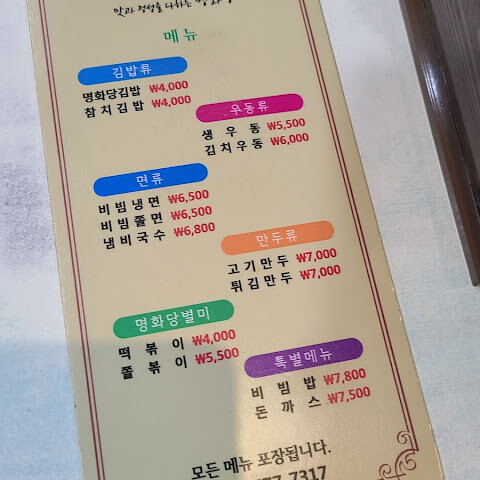 맛과 정성을 다하는
메뉴
김밥류
명화당김밥 ₩4,000
참치김밥 ₩4,000
우동류
생우동 ₩5,500
김치우동 ₩6,000
면류
비빔냉면 ₩6,500
비빔쫄면 ₩6,500
냄비국수 ₩6,800
만두류
고기만두 ₩7,000
튀김만두 ₩7,000
명화당별미
떡볶이 ₩4,000
쫄볶이 ₩5,500
특별메뉴
비빔밥 ₩7,800
돈까스 ₩7,500
모든 메뉴 포장됩니다.
7317